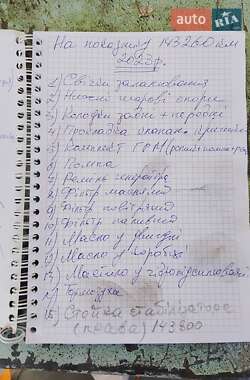 auto RIA
На показнику 143260 км
2023р.
1) Свічки запалювання
2) Нижні шарові опори
3) Колодки задні + передні
4) Прокладка клапан. кришки
5) Комплект ГРМ
6) Помпа
7) Ремінь генератора
8) Фільтр масляний
9) Фільтр повітряний
10) Фільтр паливний
11) Масло у двигуні
12) Масло у коробці
13) Масло у гідропідсилювачі
14) Термомуфта
15) Стойка стабілізатора
(права) 143800